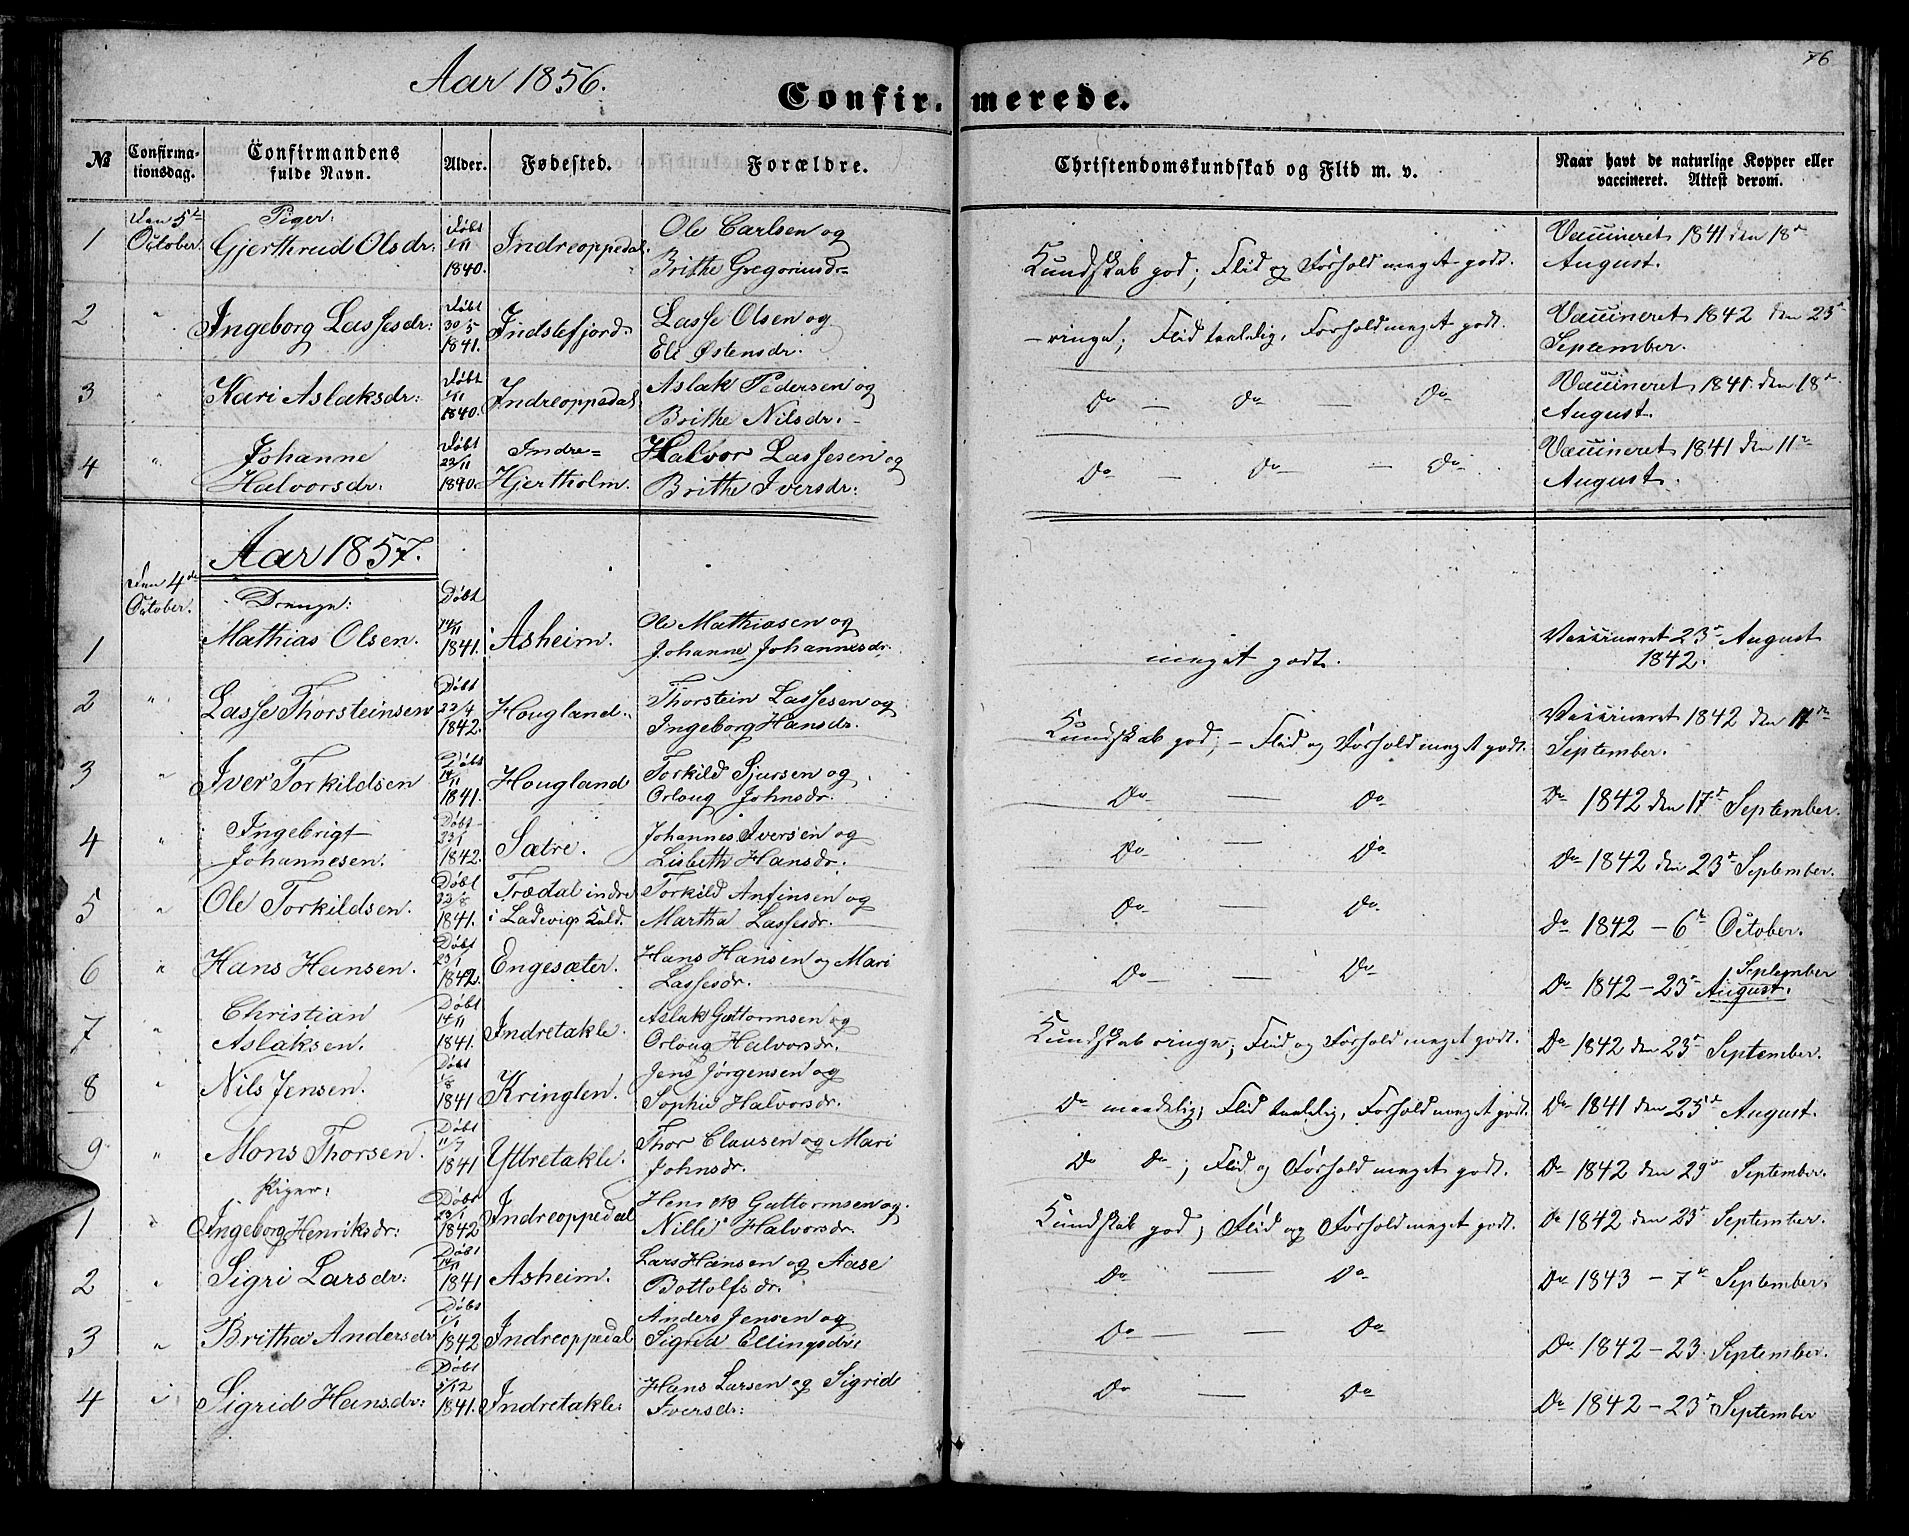 76
Aar 1856.
Confirmerede.
№ Confirma-tionsdag. Confirmandens fulde Navn. Alder. Fødested. Forældre. Christendomskundskab og Flid m. v. Naar havt de naturlige Kopper eller vaccineret. Attest derom.
Den 5te October. Piger:
1 Gjerthrud Olsdr: Døbt 1/11 1840. Indreoppedal. Ole Carlsen og Brithe Gregoriusdr. Kundskab god; Flid og Forhold meget godt. Vaccineret 1841 den 18de August.
2 " Ingeborg Lassesdr: Døbt 30/5 1841. Indslefjord. Lasse Olsen og Eli Østensdr. – ringe; Flid taalelig, Forhold meget godt. Vaccineret 1842 den 23de September.
3 " Kari Aslaksdr: Døbt 1/11 1840. Indreoppedal Aslak Pedersen og Brithe Nilsdr. Do — Do — Do Vaccineret 1841 den 18de August.
4 " Johanne Halvorsdr: Døbt 22/11 1840. Indre= Hjertholm. Halvor Lassesen og Brithe Iversdr: Do — Do — Do Vaccineret 1841 den 11te August.
Aar 1857.
Den 4de October. Drenge:
1 Mathias Olsen. Døbt 14/11 1841. Asheim. Ole Mathiasen og Johanne Johannesdr. meget godt. Vaccineret 23de August 1842.
2 " Lasse Thorsteinsen Døbt 22/4 1842. Hougland. Thorstein Lassesen og Ingeborg Hansdr. Kundskab god; – Flid og Forhold meget godt. Vaccineret 1842 den September.
3 " Iver Torkildsen Døbt 14/11 1841. Hougland Torkild Sjursen og Orloug Johnsdr. Do — Do Do 1842 den 17de September.
4 " Ingebrigt Johannesen. Døbt 23/1 1842. Sætre. Johannes Iversen og Lisbeth Hansdr. Do — Do Do 1842 den 23de September.
5 " Ole Torkildsen. Døbt 22/8 1841. Trædal indre i Ladevigs Kald. Torkild Anfinsen og Martha Lassesdr. Do — Do Do 1842 – 6te October.
6 " Hans Hansen. Døbt 23/1 1842. Engesæter. Hans Hansen og Mari Lassesdr. Do — Do Do 1842 – 23de August. September
7 " Christian Aslaksen. Døbt 14/11 1841. Indretakle. Aslak Guttormsen og Orloug Halvorsdr. Kundskab ringe; Flid og Forhold meget godt. Do 1842 den 23de September.
8 " Nils Jensen. Døbt 1/8 1841 Kringlen. Jens Jørgensen og Sophie Halvorsdr. Do maadelig; Flid taalelig, Forhold meget godt. Do 1841 den 25de August.
9 " Mons Thorsen. Døbt 11/7 1841 Yttretakle. Thor Clausen og Mari Johnsdr. Do Do; Flid og Forhold meget godt. Do 1842 den 29de September.
Piger:
1 " Ingeborg Henriksdr: Døbt 23/1 1842 Indreoppedal Henrik Guttormsen og Nille Halvorsdr. Kundskab god; Flid og Forhold meget godt. Do 1842 den 23de September.
2 " Sigri Larsdr: Døbt 14/11 1841 Asheim. Lars Hansen og Aase Bottolfsdr. Do — Do Do 1843 – 7de September.
3 " Britha Andersdr Døbt 1/1 1842 Indreoppedal Anders Jensen og Sigrid Ellingsdr: Do — — Do Do 1842 – 23. September.
4 " Sigrid Hansdr: Døbt 5/12 1841. Indretakle: Hans Larsen og Sigrid Iversdr: Do — Do Do 1842 – 23de September